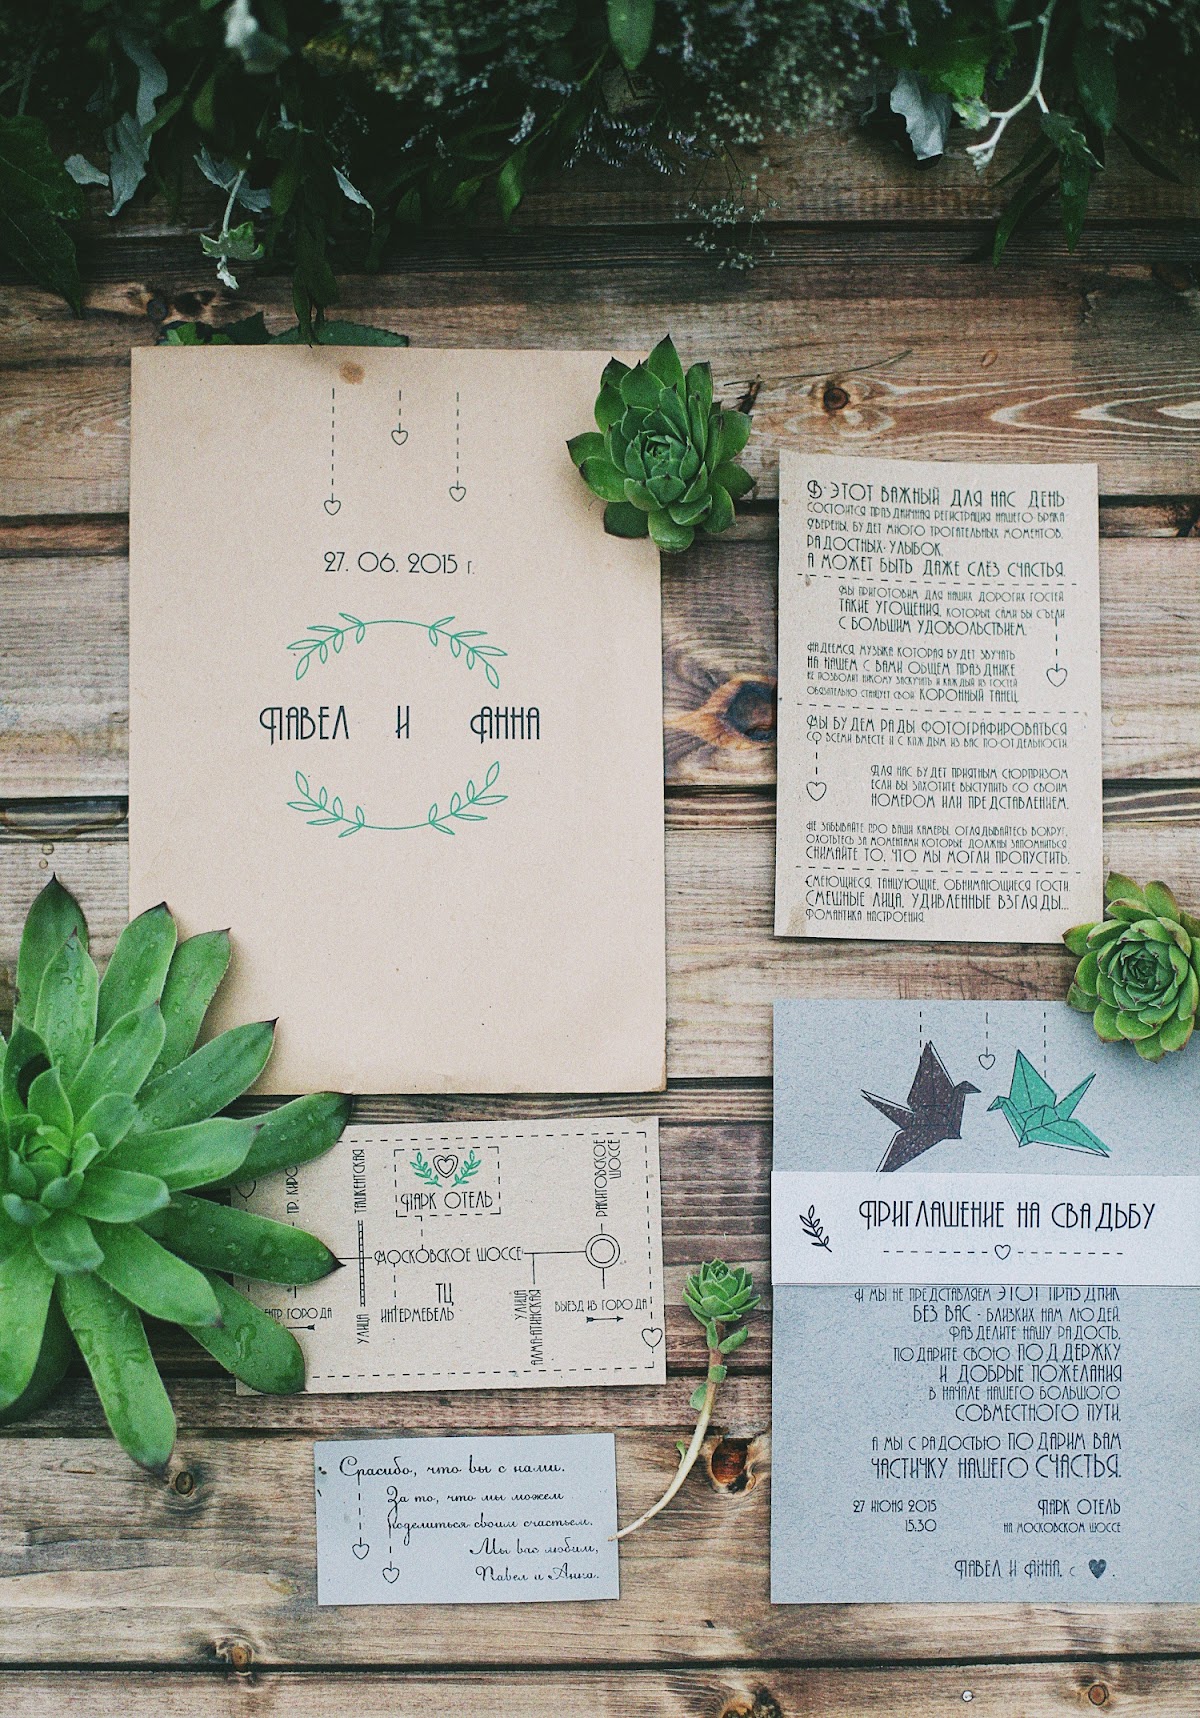 27. 06. 2015 г.
ПАВЕЛ И АННА
В ЭТОТ ВАЖНЫЙ ДЛЯ НАС ДЕНЬ
СОСТОИТСЯ ПРАЗДНИЧНАЯ РЕГИСТРАЦИЯ НАШЕГО БРАКА
УВЕРЕНЫ, БУДЕТ МНОГО ТРОГАТЕЛЬНЫХ МОМЕНТОВ,
РАДОСТНЫХ УЛЫБОК,
А МОЖЕТ БЫТЬ ДАЖЕ СЛЁЗ СЧАСТЬЯ.
МЫ ПРИГОТОВИМ ДЛЯ НАШИХ ДОРОГИХ ГОСТЕЙ
ТАКИЕ УГОЩЕНИЯ, КОТОРЫЕ САМИ БЫ СЪЕЛИ
С БОЛЬШИМ УДОВОЛЬСТВИЕМ.
НАДЕЕМСЯ, МУЗЫКА КОТОРАЯ БУДЕТ ЗВУЧАТЬ
НА НАШЕМ С ВАМИ ОБЩЕМ ПРАЗДНИКЕ
НЕ ПОЗВОЛИТ НИКОМУ ЗАСКУЧАТЬ И КАЖДЫЙ ИЗ ГОСТЕЙ
ОБЯЗАТЕЛЬНО СТАНЦУЕТ СВОЙ КОРОННЫЙ ТАНЕЦ.
МЫ БУДЕМ РАДЫ ФОТОГРАФИРОВАТЬСЯ
СО ВСЕМИ ВМЕСТЕ И С КАЖДЫМ ИЗ ВАС ПО-ОТДЕЛЬНОСТИ.
ДЛЯ НАС БУДЕТ ПРИЯТНЫМ СЮРПРИЗОМ
ЕСЛИ ВЫ ЗАХОТИТЕ ВЫСТУПИТЬ СО СВОИМ
НОМЕРОМ ИЛИ ПРЕДСТАВЛЕНИЕМ.
НЕ ЗАБЫВАЙТЕ ПРО ВАШИ КАМЕРЫ, ОГЛЯДЫВАЙТЕСЬ ВОКРУГ,
ОХОТЬТЕСЬ ЗА МОМЕНТАМИ КОТОРЫЕ ДОЛЖНЫ ЗАПОМНИТЬСЯ
СНИМАЙТЕ ТО, ЧТО МЫ МОГЛИ ПРОПУСТИТЬ.
СМЕЮЩИЕСЯ, ТАНЦУЮЩИЕ, ОБНИМАЮЩИЕСЯ ГОСТИ.
СМЕШНЫЕ ЛИЦА, УДИВЛЕННЫЕ ВЗГЛЯДЫ...
РОМАНТИКА НАСТРОЕНИЯ.
ПР. КИРО
ТАШКЕНТСКАЯ
УЛИЦА
ПАРК ОТЕЛЬ
РАКИТОВСКОЕ
ШОССЕ
МОСКОВСКОЕ ШОССЕ
ТЦ
ИНТЕРМЕБЕЛЬ
УЛИЦА
АЛМА-АТИНСКАЯ
ВЫЕЗД ИЗ ГОРОДА
ЕНТР ГОРОДА
ПРИГЛАШЕНИЕ НА СВАДЬБУ
И МЫ НЕ ПРЕДСТАВЛЯЕМ ЭТОТ ПРАЗДНИК
БЕЗ ВАС - БЛИЗКИХ НАМ ЛЮДЕЙ.
РАЗДЕЛИТЕ НАШУ РАДОСТЬ,
ПОДАРИТЕ СВОЮ ПОДДЕРЖКУ
И ДОБРЫЕ ПОЖЕЛАНИЯ
В НАЧАЛЕ НАШЕГО БОЛЬШОГО
СОВМЕСТНОГО ПУТИ.
А МЫ С РАДОСТЬЮ ПОДАРИМ ВАМ
ЧАСТИЧКУ НАШЕГО СЧАСТЬЯ.
27 ИЮНЯ 2015
15.30
ПАРК ОТЕЛЬ
НА МОСКОВСКОМ ШОССЕ
ПАВЕЛ И АННА, С ♥.
Спасибо, что вы с нами.
За то, что мы можем
поделиться своим счастьем.
Мы вас любим,
Павел и Анна.